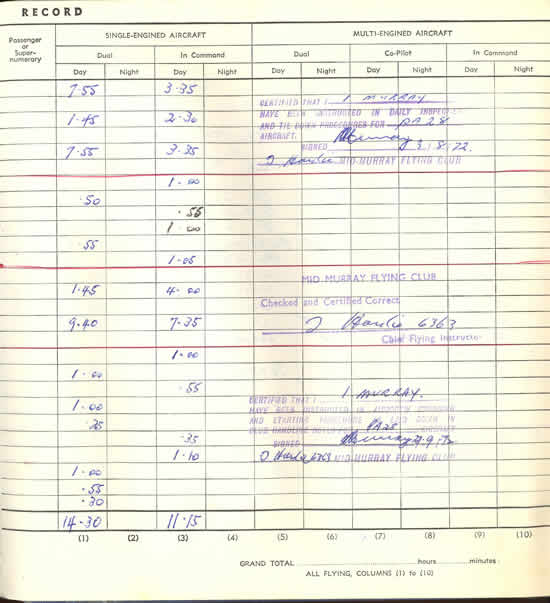 RECORD
Passenger or Super-numerary
SINGLE-ENGINED AIRCRAFT
MULTI-ENGINED AIRCRAFT
Dual In Command Dual Co-Pilot In Command
Day Night Day Night Day Night Day Night Day Night
7·55 3·35
CERTIFIED THAT I I MURRAY
1·45 2·30
HAVE BEEN INSTRUCTED IN DAILY
AND TIE DOWN PROCEDURES FOR PA 28
AIRCRAFT.
SIGNED Murray 3/8/72.
7·55 3·35
J Hardie MID-MURRAY FLYING CLUB
1·00
·50
·55
1·00
·55
1·05
1·45 4·00
MID-MURRAY FLYING CLUB
Checked and Certified Correct
9·40 7·35
J Hardie 6363
Chief Flying Instructor
1·00
1·00
·55
CERTIFIED THAT I I MURRAY.
1·00
HAVE BEEN INSTRUCTED IN
·35
AND STARTING PROCEDURE AS LAID DOWN IN
PA28
·35
SIGNED Murray
1·10
J Hardie 6363 MID-MURRAY FLYING CLUB
1·00
·55
·30
14·30 11·15
(1) (2) (3) (4) (5) (6) (7) (8) (9) (10)
GRAND TOTAL hours minutes
ALL FLYING, COLUMNS (1) to (10)